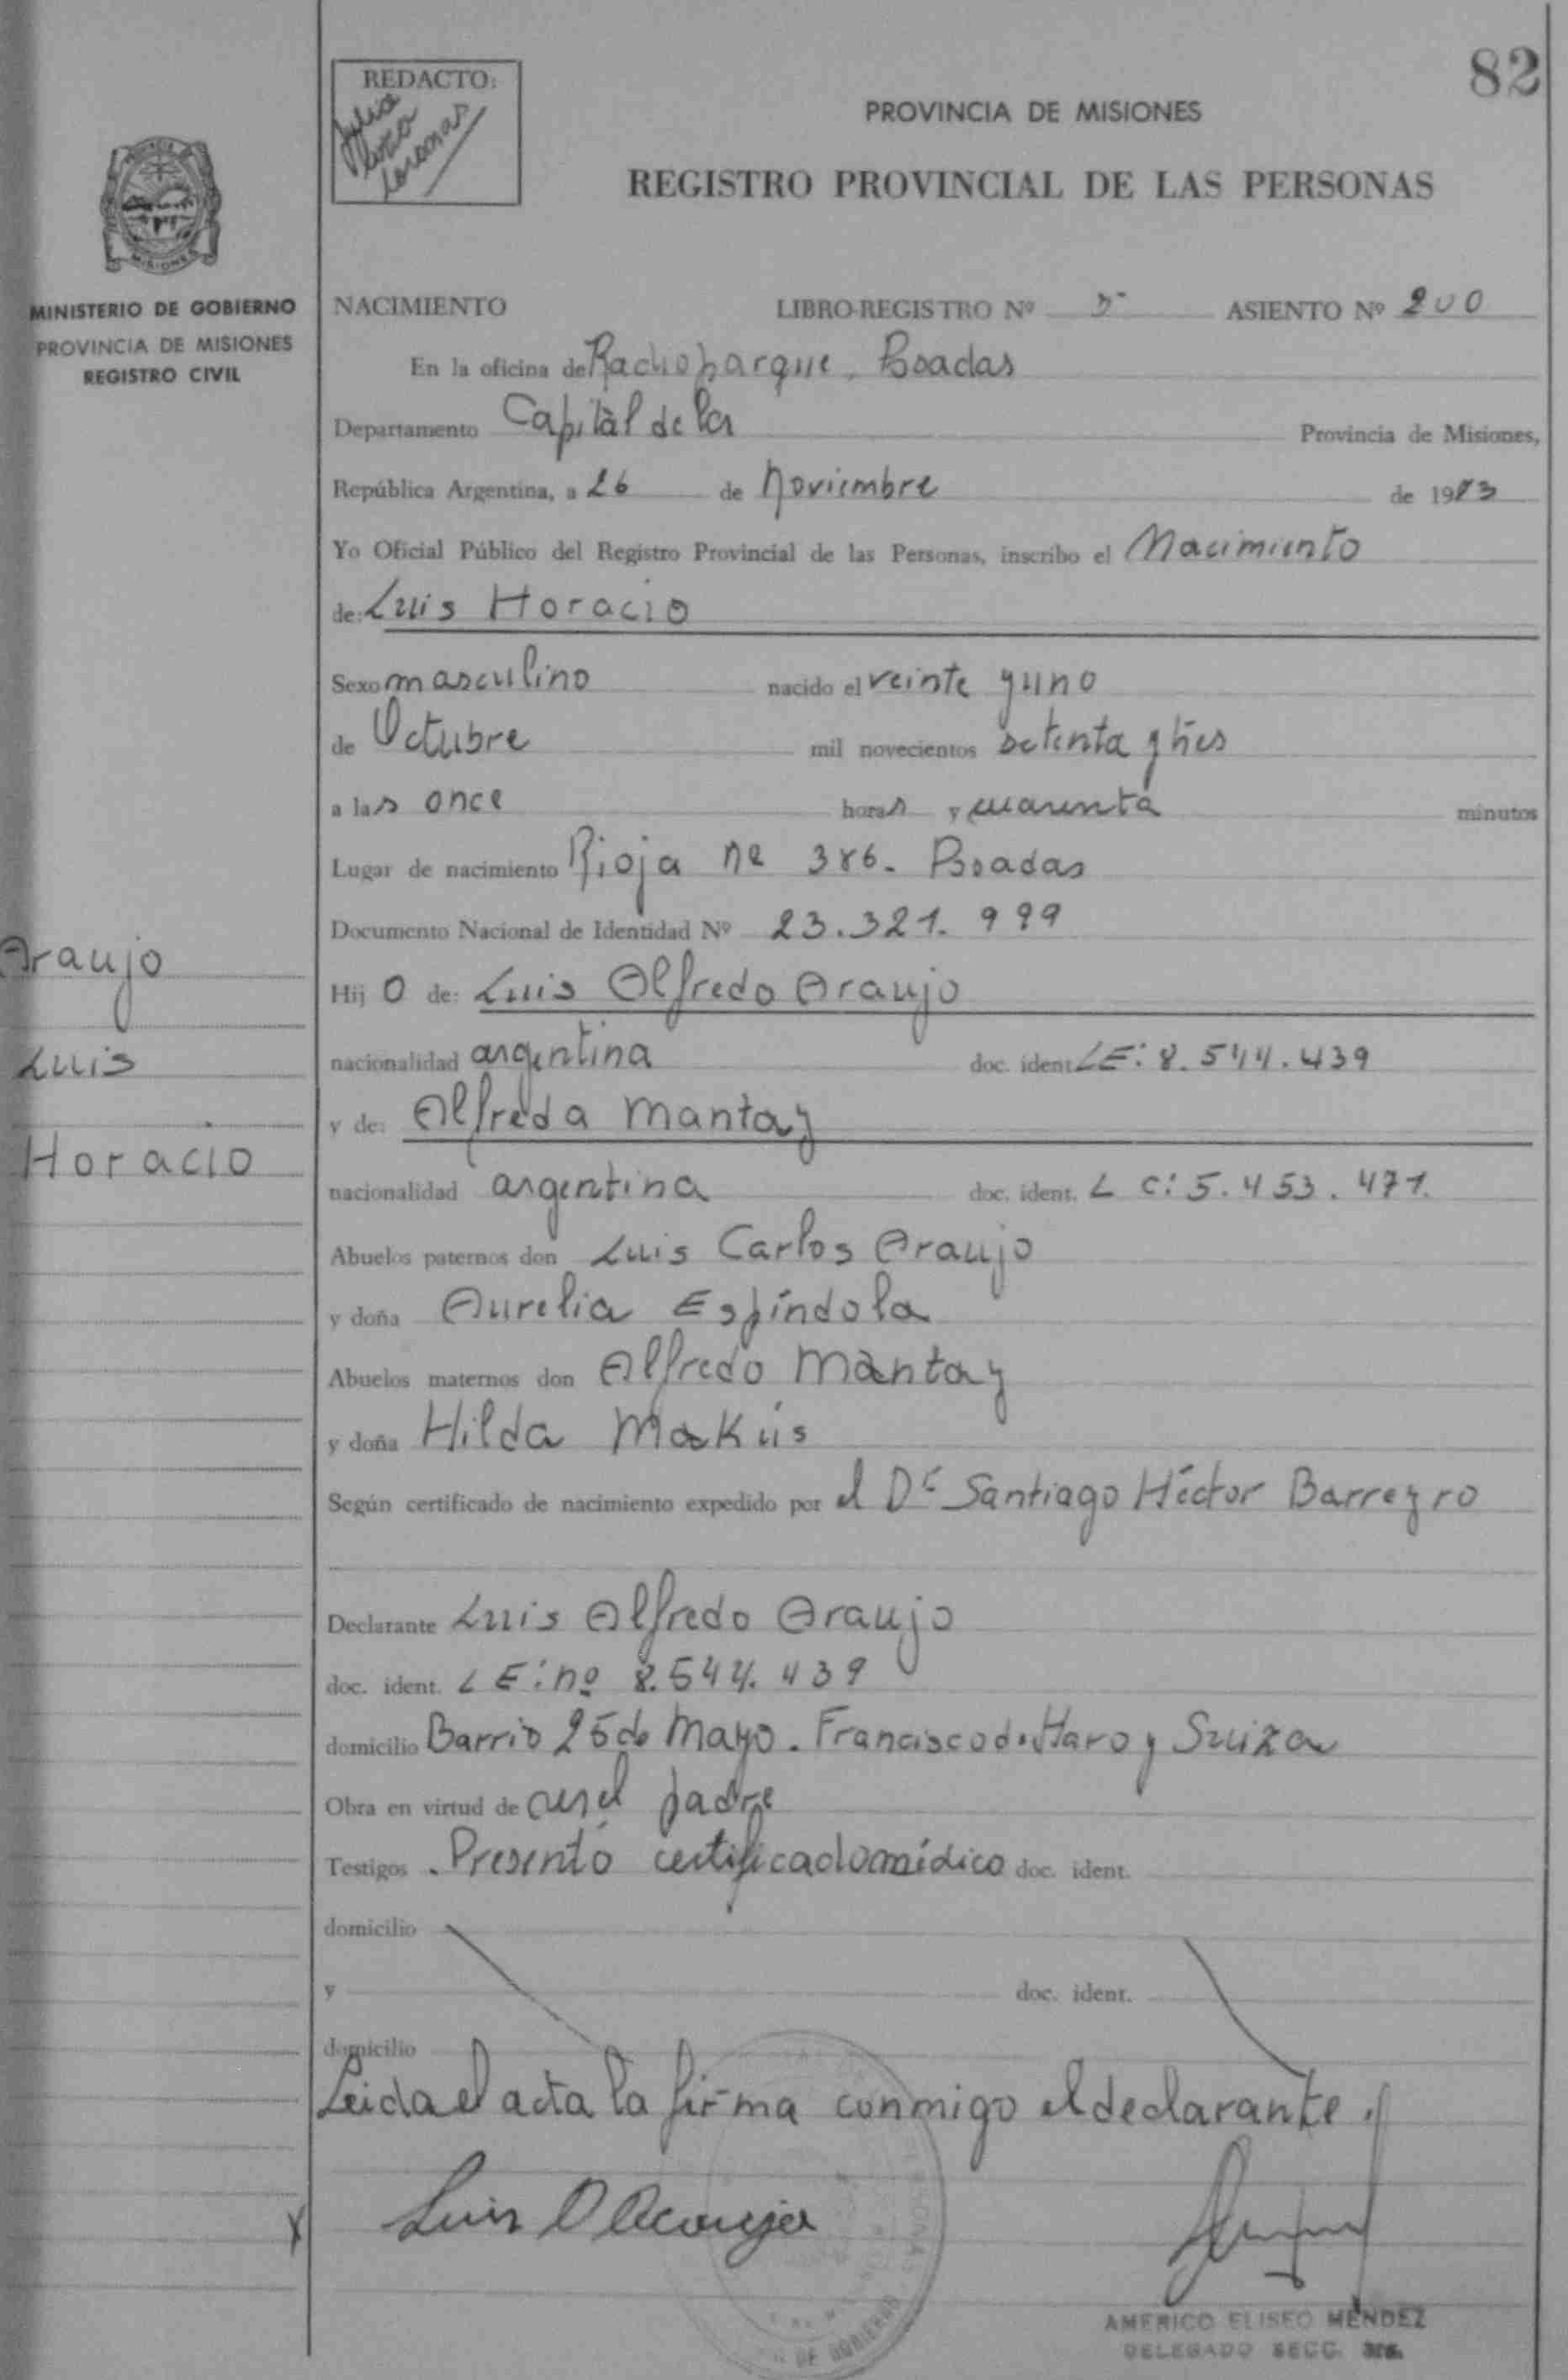 82
REDACTO:
PROVINCIA DE MISIONES
REGISTRO PROVINCIAL DE LAS PERSONAS
MISIONES
MINISTERIO DE GOBIERNO
PROVINCIA DE MISIONES
REGISTRO CIVIL
NACIMIENTO LIBRO-REGISTRO Nº ASIENTO Nº 200
En la oficina de Radioparque, Posadas
Departamento Capital de la Provincia de Misiones,
República Argentina, a 26 de Noviembre de 1973
Yo Oficial Público del Registro Provincial de las Personas, inscribo el Nacimiento
de: Luis Horacio
Sexo masculino nacido el veinte y uno
de Octubre mil novecientos setenta y tres
a las once horas y cuarenta minutos
Lugar de nacimiento Rioja nº 386. Posadas
Documento Nacional de Identidad Nº 23.321.999
Hijo de: Luis Alfredo Araujo
nacionalidad argentina doc. ident. LE: 8.544.439
y de: Alfreda Mantay
nacionalidad argentina doc. ident. L C: 5.453.471.
Abuelos paternos don Luis Carlos Araujo
y doña Aurelia Espíndola
Abuelos maternos don Alfredo Mantay
y doña Hilda Makus
Según certificado de nacimiento expedido por el Dr Santiago Héctor Barreyro
Declarante Luis Alfredo Araujo
doc. ident. L E: nº 8.544.439
domicilio Barrio 25 de Mayo. Francisco de Haro y Suiza
Obra en virtud de ser el padre
Testigos. Presentó certificado médico doc. ident.
domicilio
y doc. ident.
domicilio
Leida el acta la firma conmigo el declarante.
Luis A Araujo
AMERICO ELISEO MENDEZ
DELEGADO SECC. 3ra.
DE GOBIERNO
Araujo
Luis
Horacio